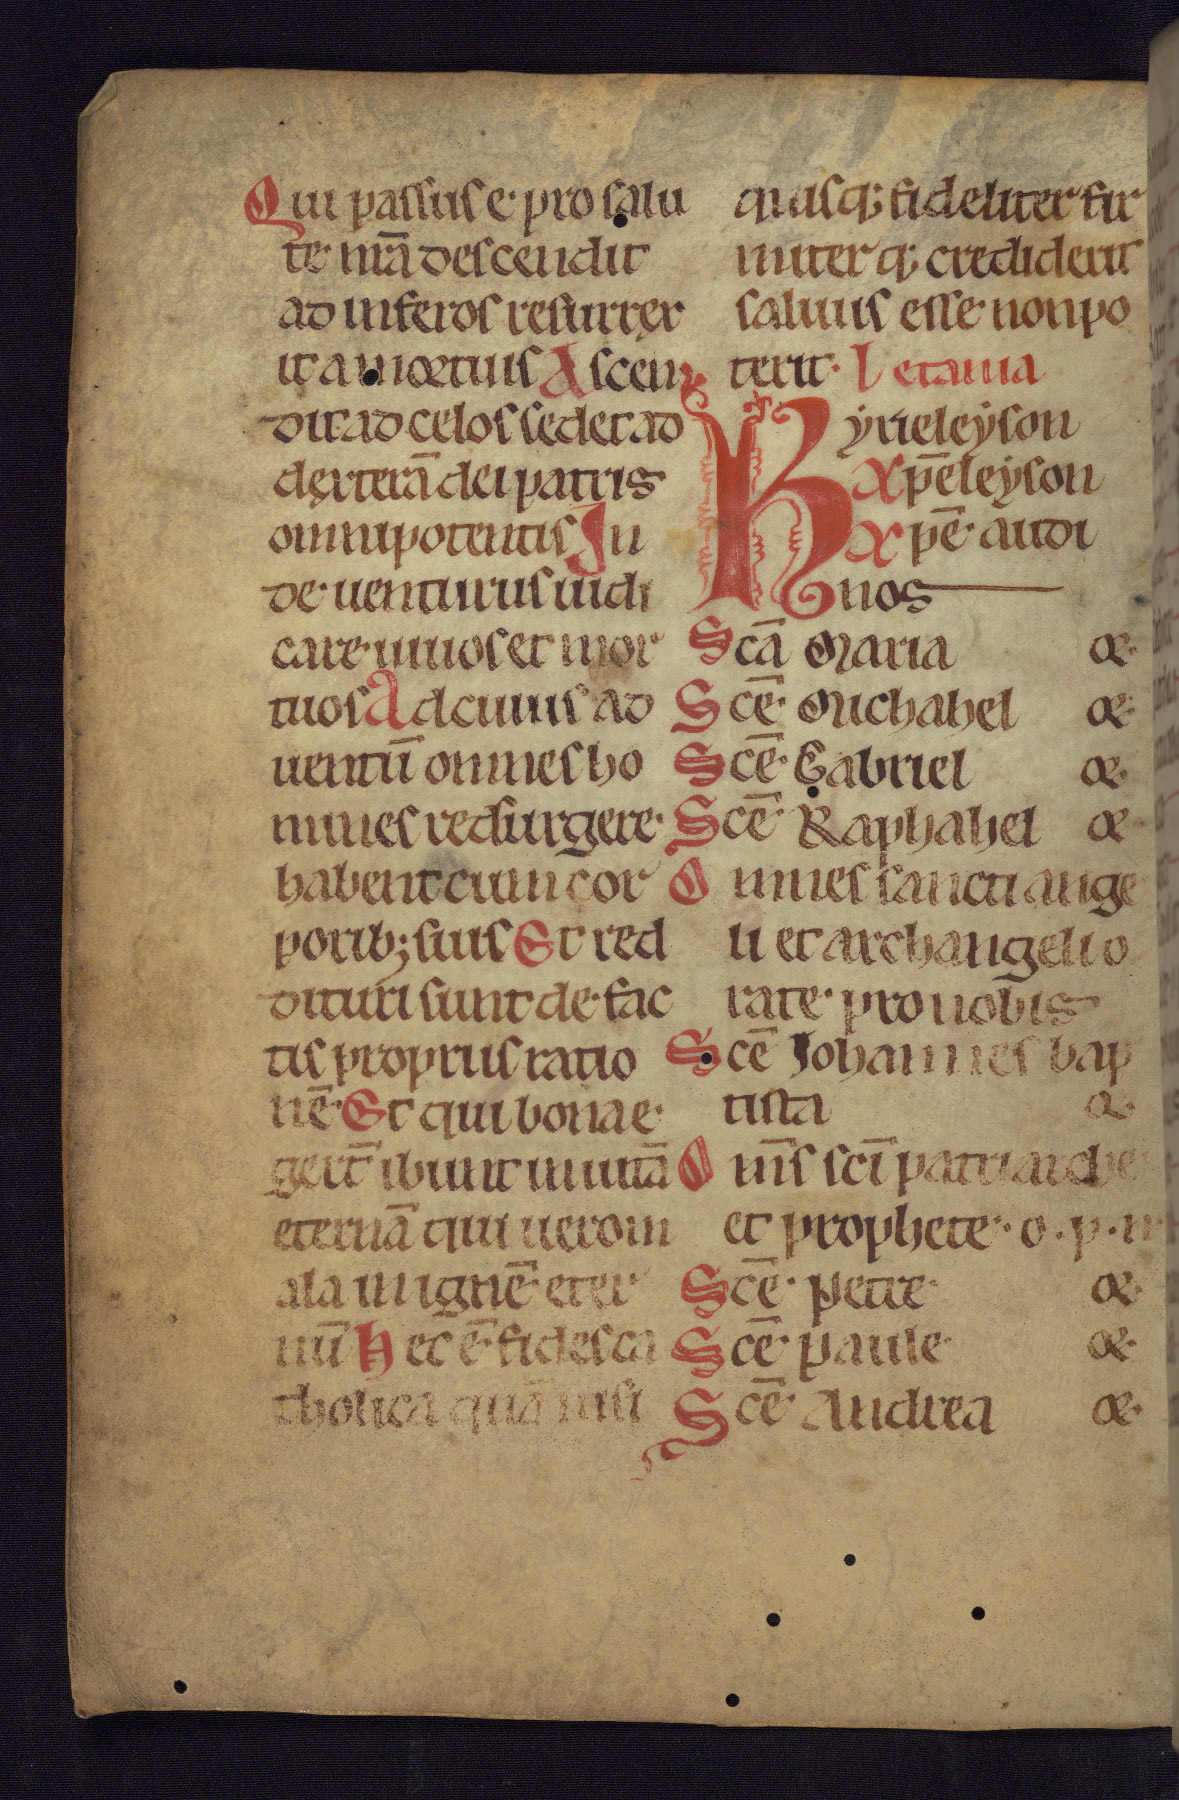 Qui passus e pro salu
te nr̄ā descendit
ad inferos resurrex
it a mortuis Ascen
dit ad celos sedet ad
dexterā dei patris
omnipotentis In
de uenturus iudi
care uiuos et mor
tuos Ad cuius ad
uentū omnes ho
mines redsurgere
habent cum cor
porib; suis Et red
dituri sunt de fac
tis propriis ratio
nē Et qui bona e
gert̄ ibunt in uitā
eternā qui uero m
ala in ignē eter
nū Hec ē fides ca
tholica quā nisi
quisq; fideliter fir
miter q; crediderit
saluus esse non po
terit Letania
Kyrieleyson
Xp̄eleyson
Xp̄e audi
nos
Scā Maria or
Scē Michahel or
Scē Gabriel or
Scē Raphahel or
Omnes sancti ange
li et archangeli o
rate pro nobis
Scē Johannes bap
tista or
Om̄s scī patriarche
et prophete · o · p · n
Scē Petre or
Scē Paule or
Scē Andrea or